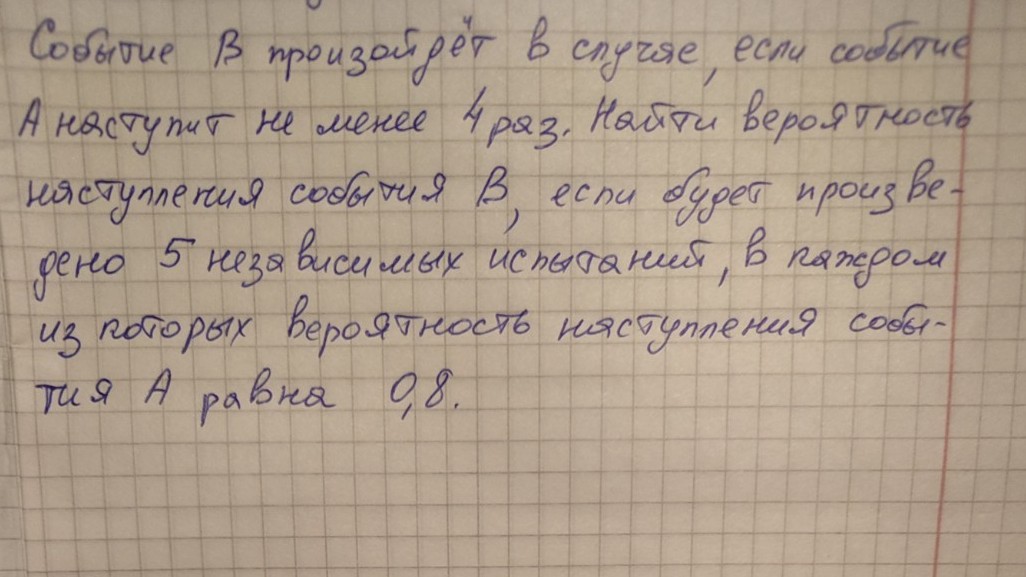 Событие В произойдёт в случае, если событие
А наступит не менее 4 раз. Найти вероятность
наступления события В, если будет произве-
дено 5 независимых испытаний, в каждом
из которых вероятность наступления собы-
тия А равна 0,8.